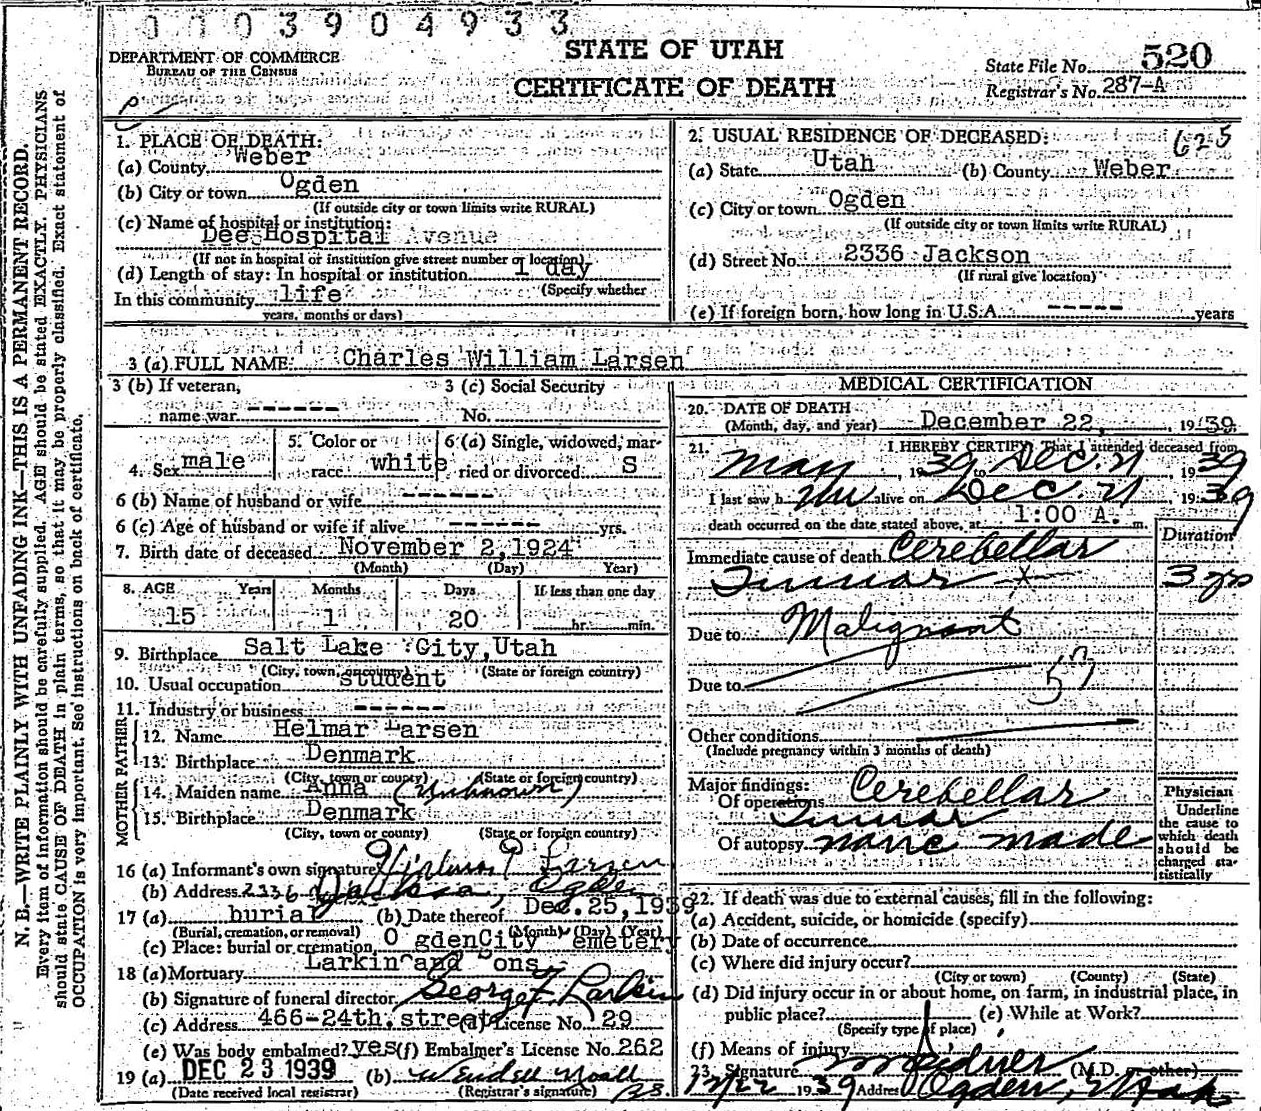 0003904933
DEPARTMENT OF COMMERCE
BUREAU OF THE CENSUS
STATE OF UTAH
CERTIFICATE OF DEATH
State File No. 520
Registrar's No. 287-A
N. B.—WRITE PLAINLY WITH UNFADING INK—THIS IS A PERMANENT RECORD.
Every item of information should be carefully supplied. AGE should be stated EXACTLY. PHYSICIANS
should state CAUSE OF DEATH in plain terms, so that it may be properly classified. Exact statement of
OCCUPATION is very important. See instructions on back of certificate.
1. PLACE OF DEATH:
(a) County Weber
(b) City or town Ogden
(If outside city or town limits write RURAL)
(c) Name of hospital or institution:
Dee Hospital Avenue
(If not in hospital or institution give street number or location)
(d) Length of stay: In hospital or institution 1 day
(Specify whether
In this community life
years, months or days)
2. USUAL RESIDENCE OF DECEASED: 625
(a) State Utah (b) County Weber
(c) City or town Ogden
(If outside city or town limits write RURAL)
(d) Street No. 2336 Jackson
(If rural give location)
(e) If foreign born, how long in U.S.A. ----- years
3 (a) FULL NAME: Charles William Larsen
3 (b) If veteran, 3 (c) Social Security
name war ------ No.
4. Sex male 5. Color or race white 6 (a) Single, widowed, married or divorced S
6 (b) Name of husband or wife ------
6 (c) Age of husband or wife if alive ------ yrs.
7. Birth date of deceased November 2, 1924
(Month) (Day) Year)
8. AGE Years Months Days If less than one day
15 1 20 hr. min.
9. Birthplace Salt Lake City, Utah
(City, town, or county) (State or foreign country)
10. Usual occupation student
11. Industry or business ------
FATHER
12. Name Helmar Larsen
13. Birthplace Denmark
(City, town or county) (State or foreign country)
MOTHER
14. Maiden name Anna (Unknown)
15. Birthplace Denmark
(City, town or county) (State or foreign country)
16 (a) Informant's own signature Larsen
(b) Address 2336 Ogden
17 (a) burial (b) Date thereof Dec. 25, 1939
(Burial, cremation, or removal) (Month) (Day) (Year)
(c) Place: burial or cremation O gdenCity emetery
18 (a) Mortuary Larkin and ons
(b) Signature of funeral director George F. Larkin
(c) Address 466-24th. street (d) License No. 29
(e) Was body embalmed? yes (f) Embalmer's License No. 262
19 (a) DEC 23 1939 (b) Wendell Noall
(Date received local registrar) (Registrar's signature)
MEDICAL CERTIFICATION
20. DATE OF DEATH
(Month, day, and year) December 22, 1939
21. I HEREBY CERTIFY, That I attended deceased from
May, 1939 to Dec. 21 1939
I last saw h im alive on Dec. 21, 1939
death occurred on the date stated above, at 1:00 A. m.
Duration
Immediate cause of death Cerebellar
Tumor x 3 yrs
Due to Malignant
Due to
57
Other conditions
(Include pregnancy within 3 months of death)
Major findings:
Of operations Cerebellar
Tumor
Of autopsy none made
Physician
Underline
the cause to
which death
should be
charged sta-
tistically
22. If death was due to external causes, fill in the following:
(a) Accident, suicide, or homicide (specify)
(b) Date of occurrence
(c) Where did injury occur?
(City or town) (County) (State)
(d) Did injury occur in or about home, on farm, in industrial place, in
public place? (e) While at Work?
(Specify type of place)
(f) Means of injury
23. Signature (M.D. or other)
12/22 1939 Address Ogden, Utah